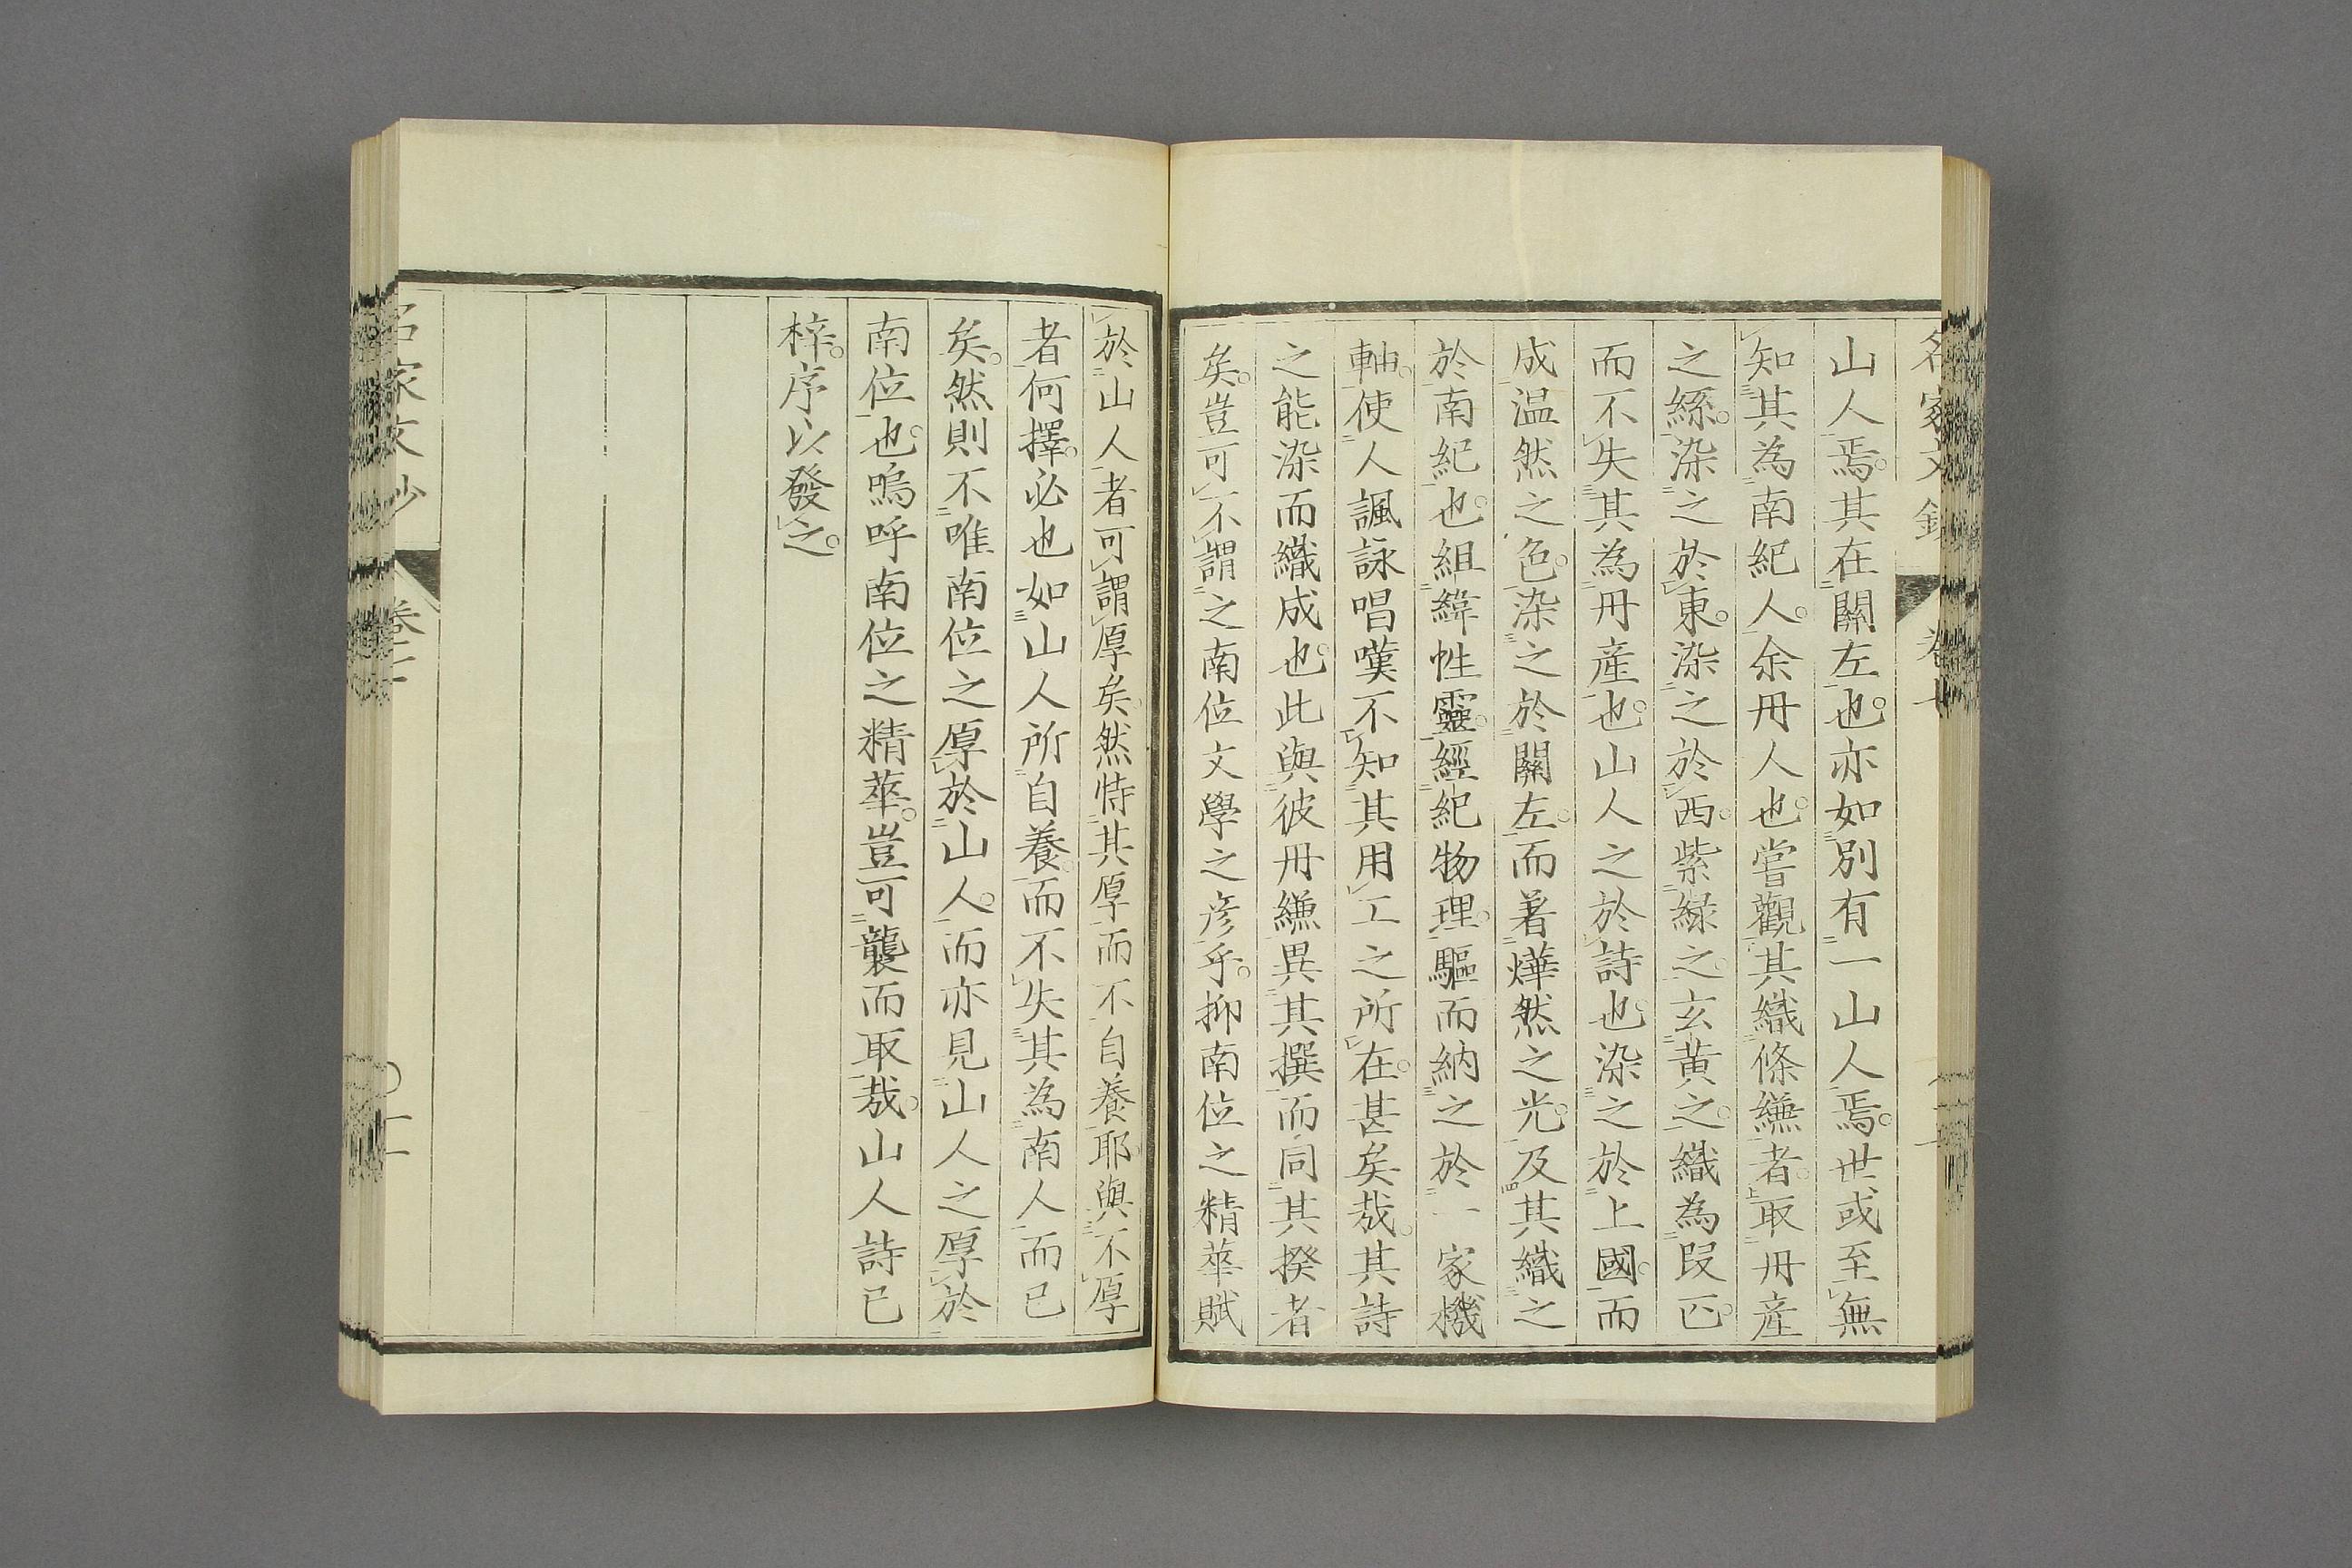 名家文鈔
山人焉。其在關左也。亦如別有一山人焉。世或至無
知其為南紀人。余丹人也。嘗觀其織絛縑者。取丹產
之絲。染之於東。染之於西。紫綠之。玄黃之。織為段匹。
而不失其為丹產也。山人之於詩也。染之於上國。而
成温然之色。染之於關左。而著燁然之光。及其織之
於南紀也。組緯性靈。經紀物理。驅而納之於一家機
軸。使人諷詠唱嘆不知其用工之所在。甚矣哉。其詩
之能染而織成也。此與彼丹縑異其撰而同其揆者
矣。豈可不謂之南位文學之彥乎。抑南位之精華賦
於山人者可謂厚矣。然恃其厚而不自養耶。與不厚
者何擇。必也如山人所自養。而不失其為南人而已
矣。然則不唯南位之厚於山人。而亦見山人之厚於
南位也。嗚呼南位之精華。豈可襲而取哉。山人詩已
梓。序以發之。
名家文鈔